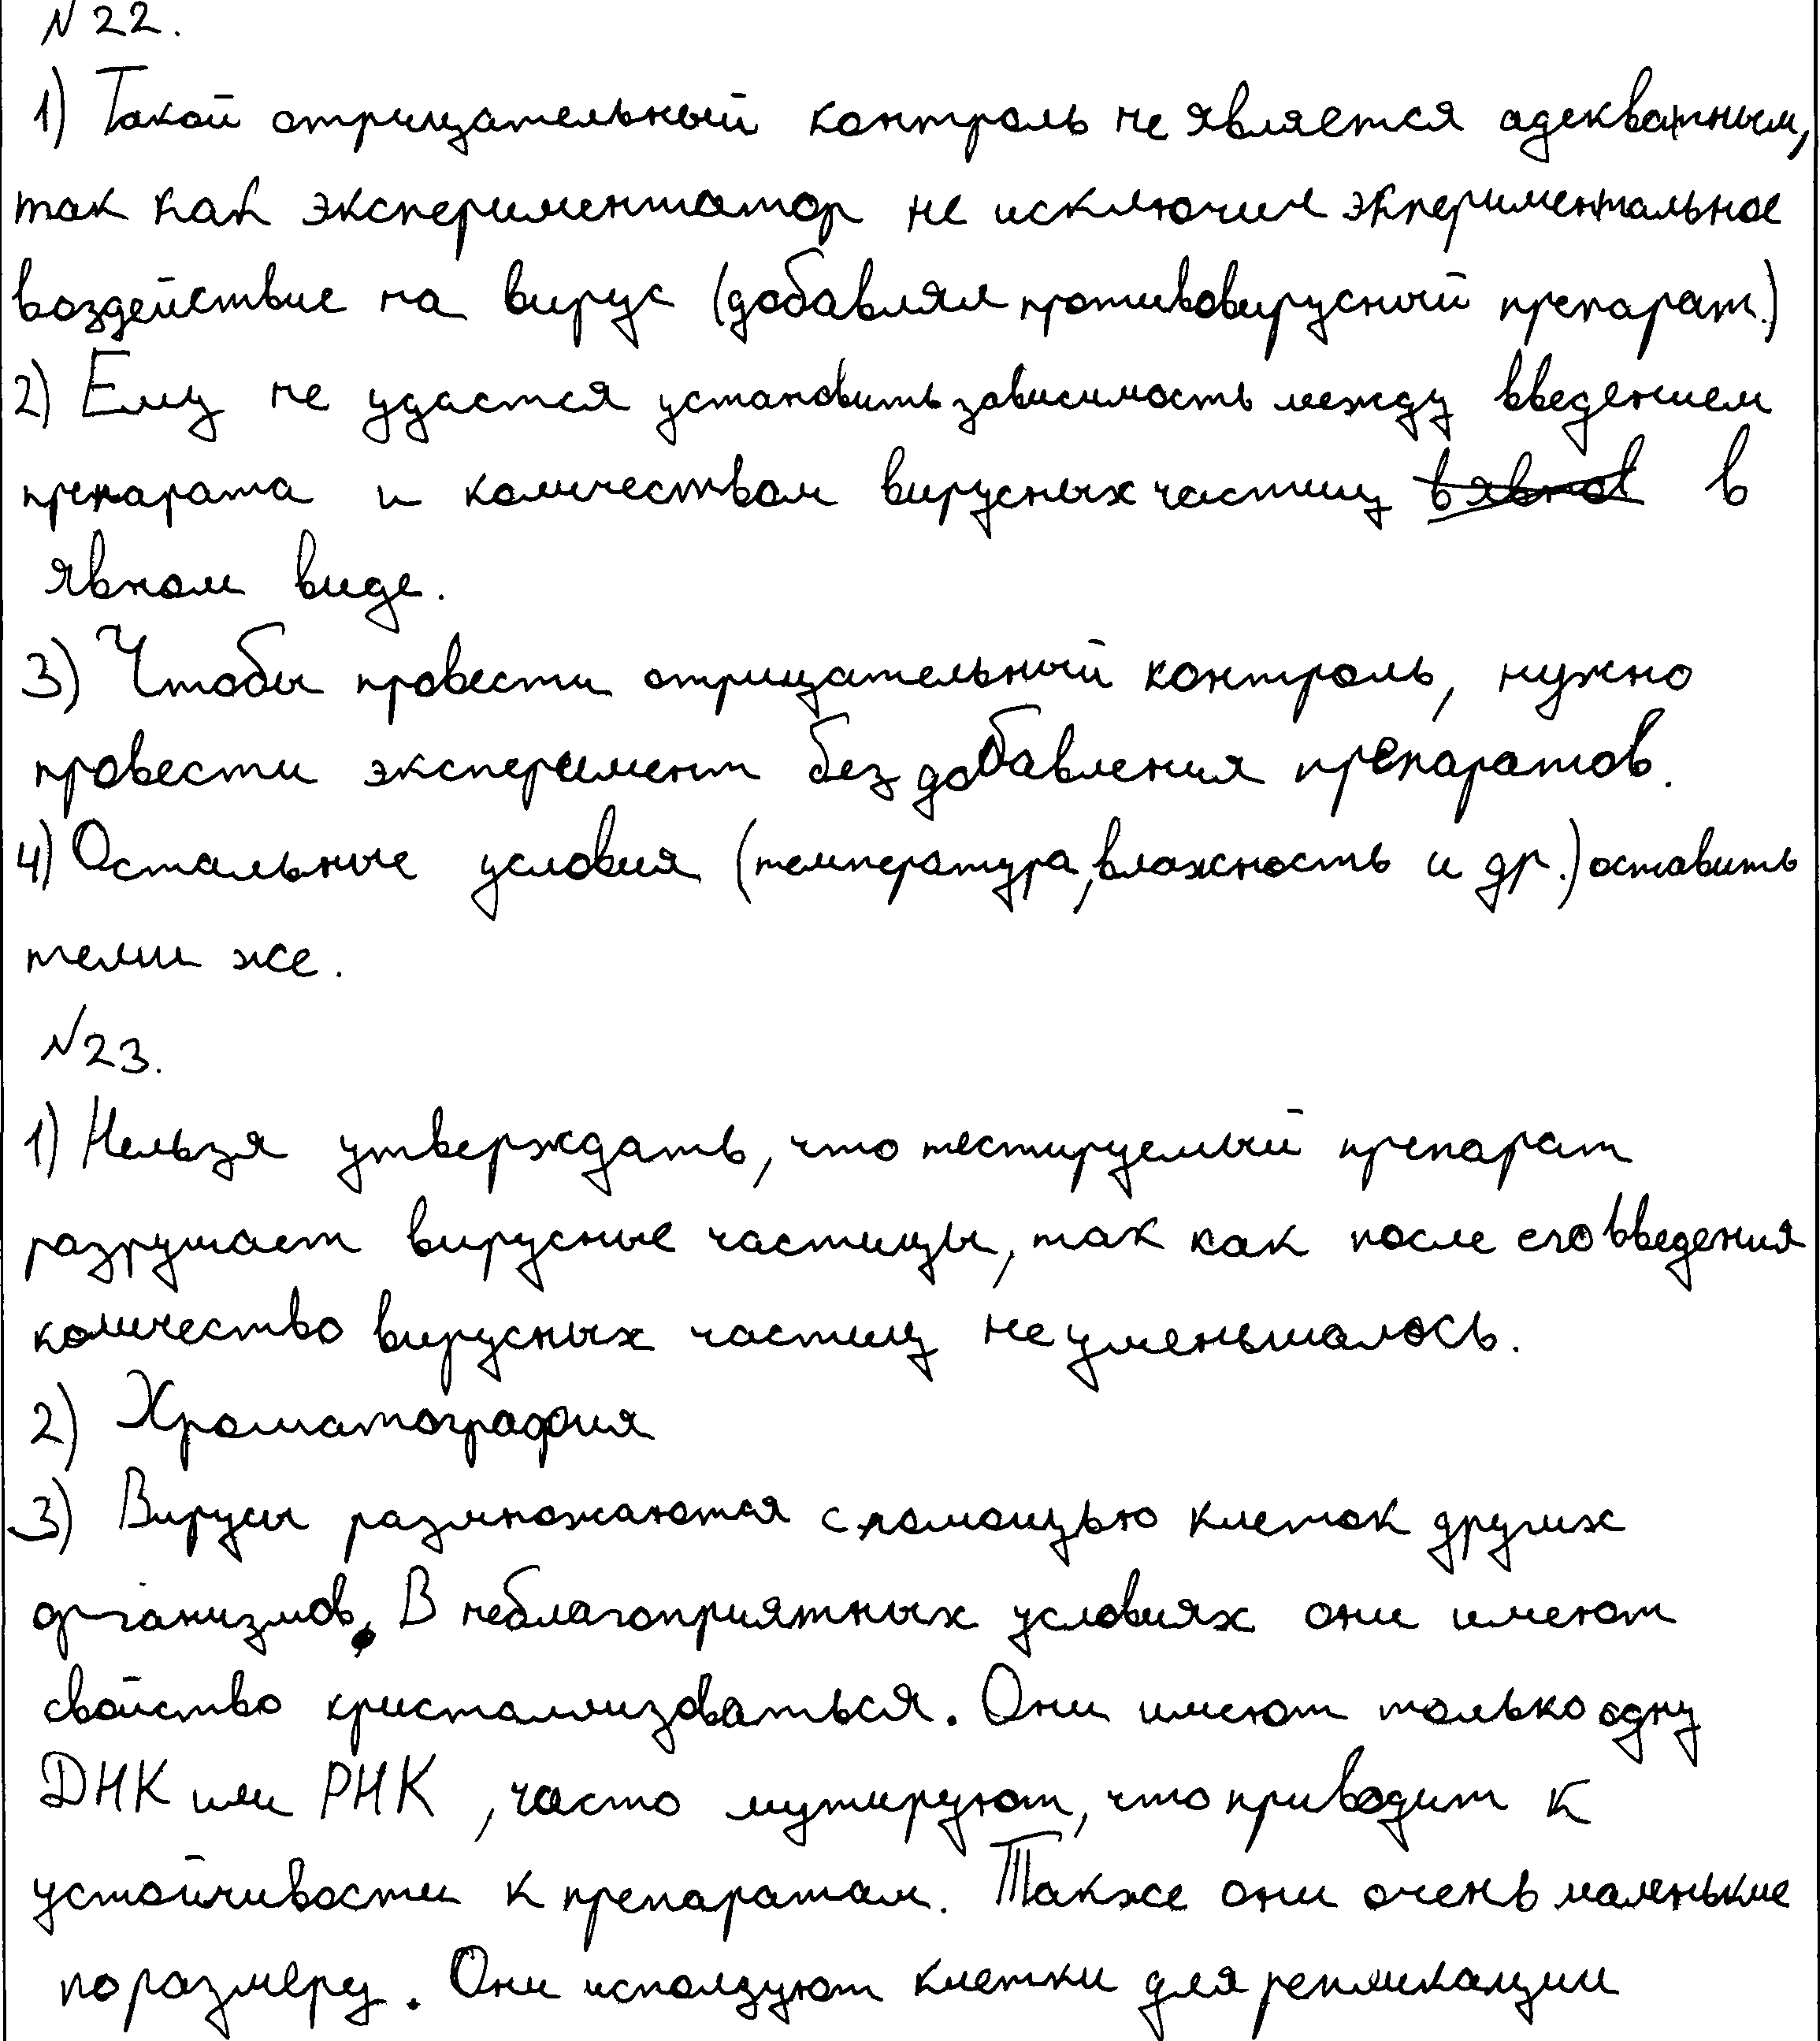 № 22.
1) Такой отрицательный контроль не является адекватным,
так как экспериментатор не исключил экпериментальное
воздействие на вирус (добавлял противовирусный препарат.)
2) Ему не удастся установить зависимость между введением
препарата и количеством вирусных частиц в явной в
явном виде.
3) Чтобы провести отрицательный контроль, нужно
провести эксперимент без добавления препаратов.
4) Остальные условия (температура, влажность и др.) оставить
теми же.
№23.
1) Нельзя утверждать, что тестируемый препарат
разрушает вирусные частицы, так как после его введения
количество вирусных частиц не уменьшалось.
2) Хроматография
3) Вирусы размножаются с помощью клеток других
организмов. В неблагоприятных условиях они имеют
свойство кристаллизоваться. Они имеют только одну
ДНК или РНК, часто мутируют, что приводит к
устойчивости к препаратам. Также они очень маленькие
по размеру. Они исползуют клетки для репликации